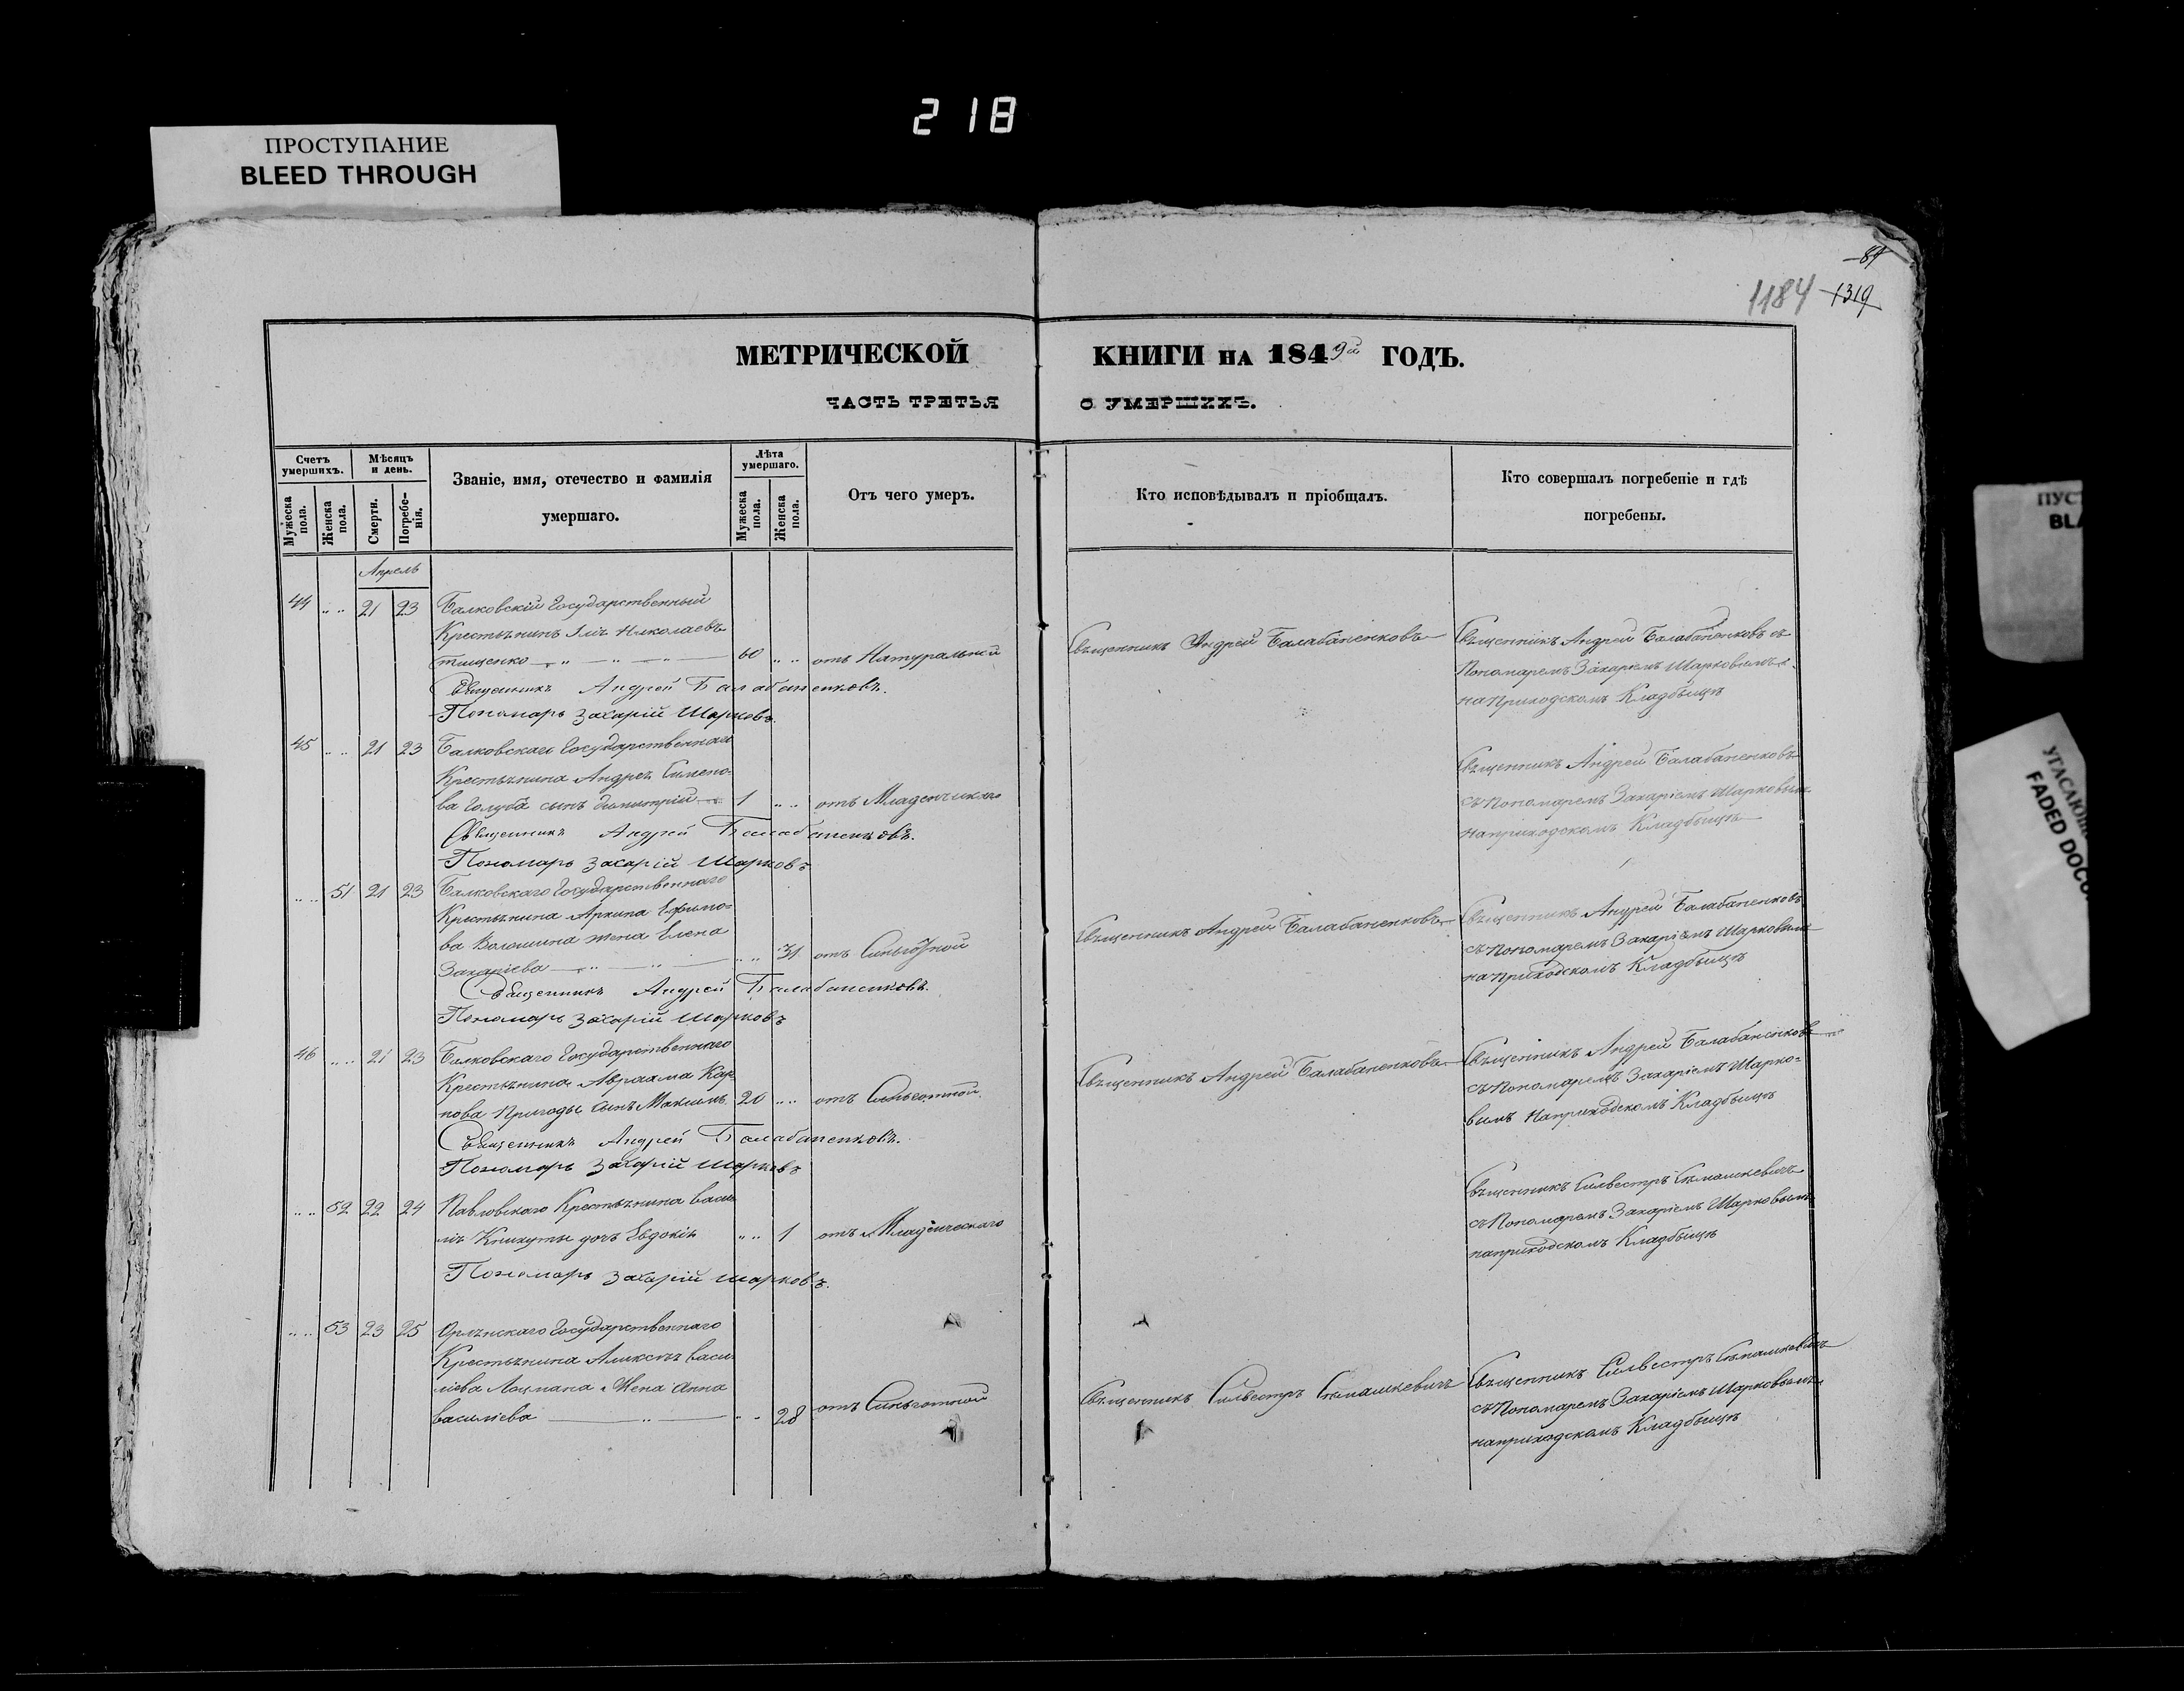 218
ПРОСТУПАНИЕ
BLEED THROUGH
84
1184 1319
МЕТРИЧЕСКОЙ КНИГИ НА 1849й ГОДЪ.
ЧАСТЬ ТРЕТЬЯ О УМЕРШИХЪ.
Счетъ умершихъ.
Мужеска пола.
Женска пола.
Мѣсяцъ и день.
Смерти.
Погребенія.
Званіе, имя, отечество и фамилія
умершаго.
Лѣта умершаго.
Мужеска пола.
Женска пола.
Отъ чего умеръ.
Кто исповѣдывалъ и пріобщалъ.
Кто совершалъ погребеніе и гдѣ
погребены.
Апрель
44 21 23 Балковскій Государственный
Крестьянинъ Николаевъ
Тищенко 60 отъ Натуральной
Священникъ Андрей Балабаненковъ
Священникъ Андрей Балабаненковъ съ
Пономаремъ Захаріемъ Шарковымъ
на приходскомъ Кладбищѣ
Священникъ Андрей Балабаненковъ.
Пономарь Захарій Шарковъ.
45 21 23 Балковскаго Государственнаго
Крестьянина Андрея Симено-
ва Голуба сынъ Димитрій 1 отъ Младенческаго
Священникъ Андрей Балабаненковъ
съ Пономаремъ Захаріемъ Шарковымъ
на приходскомъ Кладбищѣ
Священникъ Андрей Балабаненковъ.
Пономарь Захарій Шарковъ
51 21 23 Балковскаго Государственнаго
Крестьянина Архипа Ефимо=
ва Волошина жена Елена
Захаріева 31 отъ
Священникъ Андрей Балабаненковъ
Священникъ Андрей Балабаненковъ
съ Пономаремъ Захаріемъ Шарковымъ
на приходскомъ Кладбищѣ
Священникъ Андрей Балабаненковъ.
Пономарь Захарій Шарковъ
46 21 23 Балковскаго Государственнаго
Крестьянина Авраама Кар-
пова Пригоды сынъ Максимъ 20 отъ
Священникъ Андрей Балабаненковъ
Священникъ Андрей Балабаненковъ
съ Пономаремъ Захаріемъ Шарко=
вымъ на приходскомъ Кладбищѣ
Священникъ Андрей Балабаненковъ.
Пономарь Захарій Шарковъ
52 22 24 Павловскаго Крестьянина Васи-
лія дочь Евдокія 1 отъ Младенческаго
Священникъ Силвестръ Семашкевичъ
съ Пономаремъ Захаріемъ Шарковымъ
на приходскомъ Кладбищѣ
Пономарь Захарій Шарковъ.
53 23 25 Орлянскаго Государственнаго
Крестьянина Алексея Васи-
ліева Лоцмана жена Анна
Василіева 28 отъ
Священникъ Силвестръ Семашкевичъ
Священникъ Силвестръ Семашкевичъ
съ Пономаремъ Захаріемъ Шарковымъ
на приходскомъ Кладбищѣ
ПУС
BLA
УГАСАЮЩ
FADED DOCU